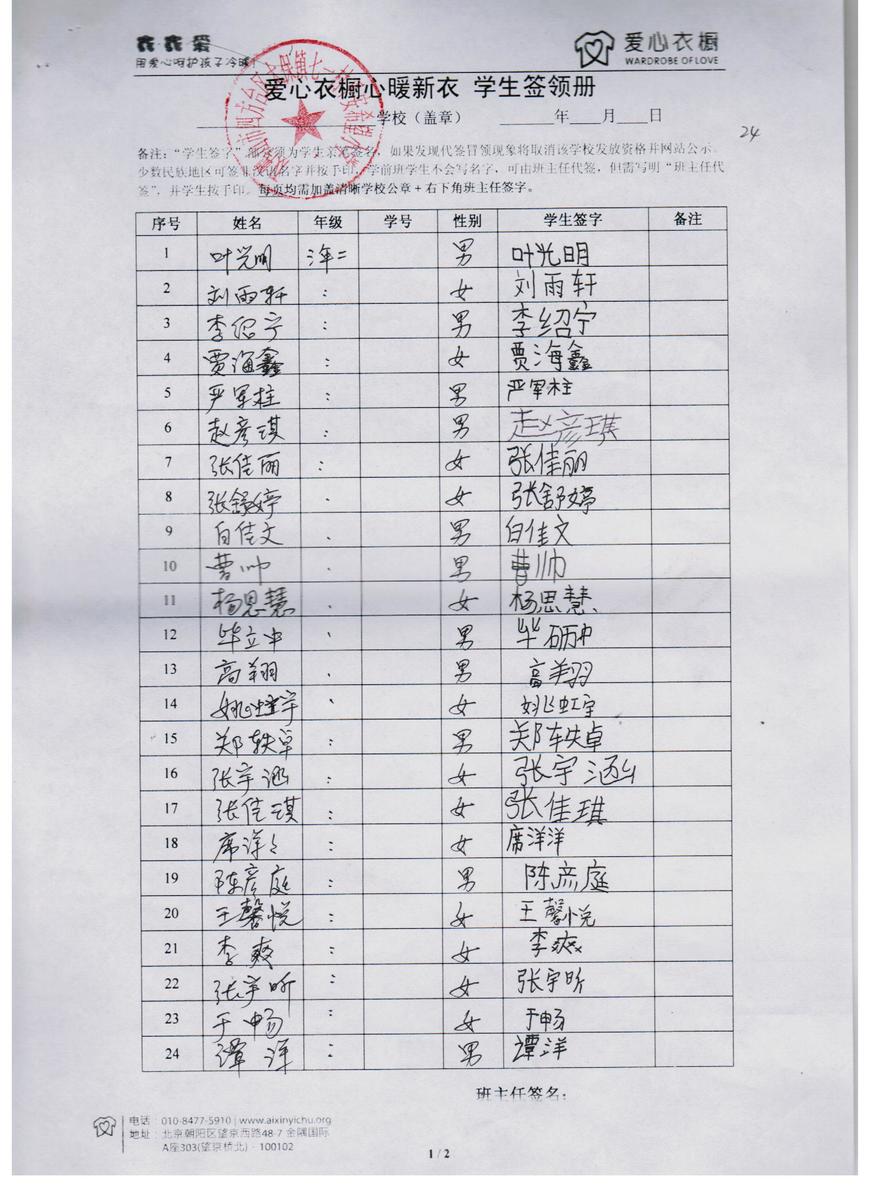 森森爱
用爱心呵护孩子冷暖!
爱心衣橱
WARDROBE OF LOVE
爱心衣橱心暖新衣 学生签领册
学校（盖章） 年 月 日
24
备注："学生签字"部分须为学生亲笔签名，如果发现代签冒领现象将取消该学校发放资格并网站公示。
少数民族地区可签非汉语名字并按手印，学前班学生不会写名字，可由班主任代签，但需写明"班主任代
签"，并学生按手印。每页均需加盖清晰学校公章+右下角班主任签字。
序号 姓名 年级 学号 性别 学生签字 备注
1 叶光明 年二 男 叶光明
2 刘雨轩 : 女 刘雨轩
3 李绍宁 : 男 李绍宁
4 贾海鑫 : 女 贾海鑫
5 严军柱 : 男 严军柱
6 赵彦琪 : 男 赵彦琪
7 张佳丽 : 女 张佳丽
8 张舒婷 . 女 张舒婷
9 白佳文 . 男 白佳文
10 曹帅 . 男 曹帅
11 杨思慧 . 女 杨思慧
12 毕立中 . 男 毕砺中
13 高翔 . 男 高翔
14 姚虹宇 . 女 姚虹宇
15 郑轶卓 : 男 郑轶卓
16 张宇涵 : 女 张宇涵
17 张佳琪 : 女 张佳琪
18 席洋々 : 女 席洋洋
19 陈彦庭 : 男 陈彦庭
20 王馨悦 : 女 王馨悦
21 李爽 : 女 李爽
22 张宇昕 : 女 张宇昕
23 于畅 : 女 于畅
24 谭洋 : 男 谭洋
班主任签名：
电话 010-8477-5910 | www.aixinyichu.org
地址 北京朝阳区望京西路48-7 金隅国际
A座303(望京桥北) - 100102
1 / 2